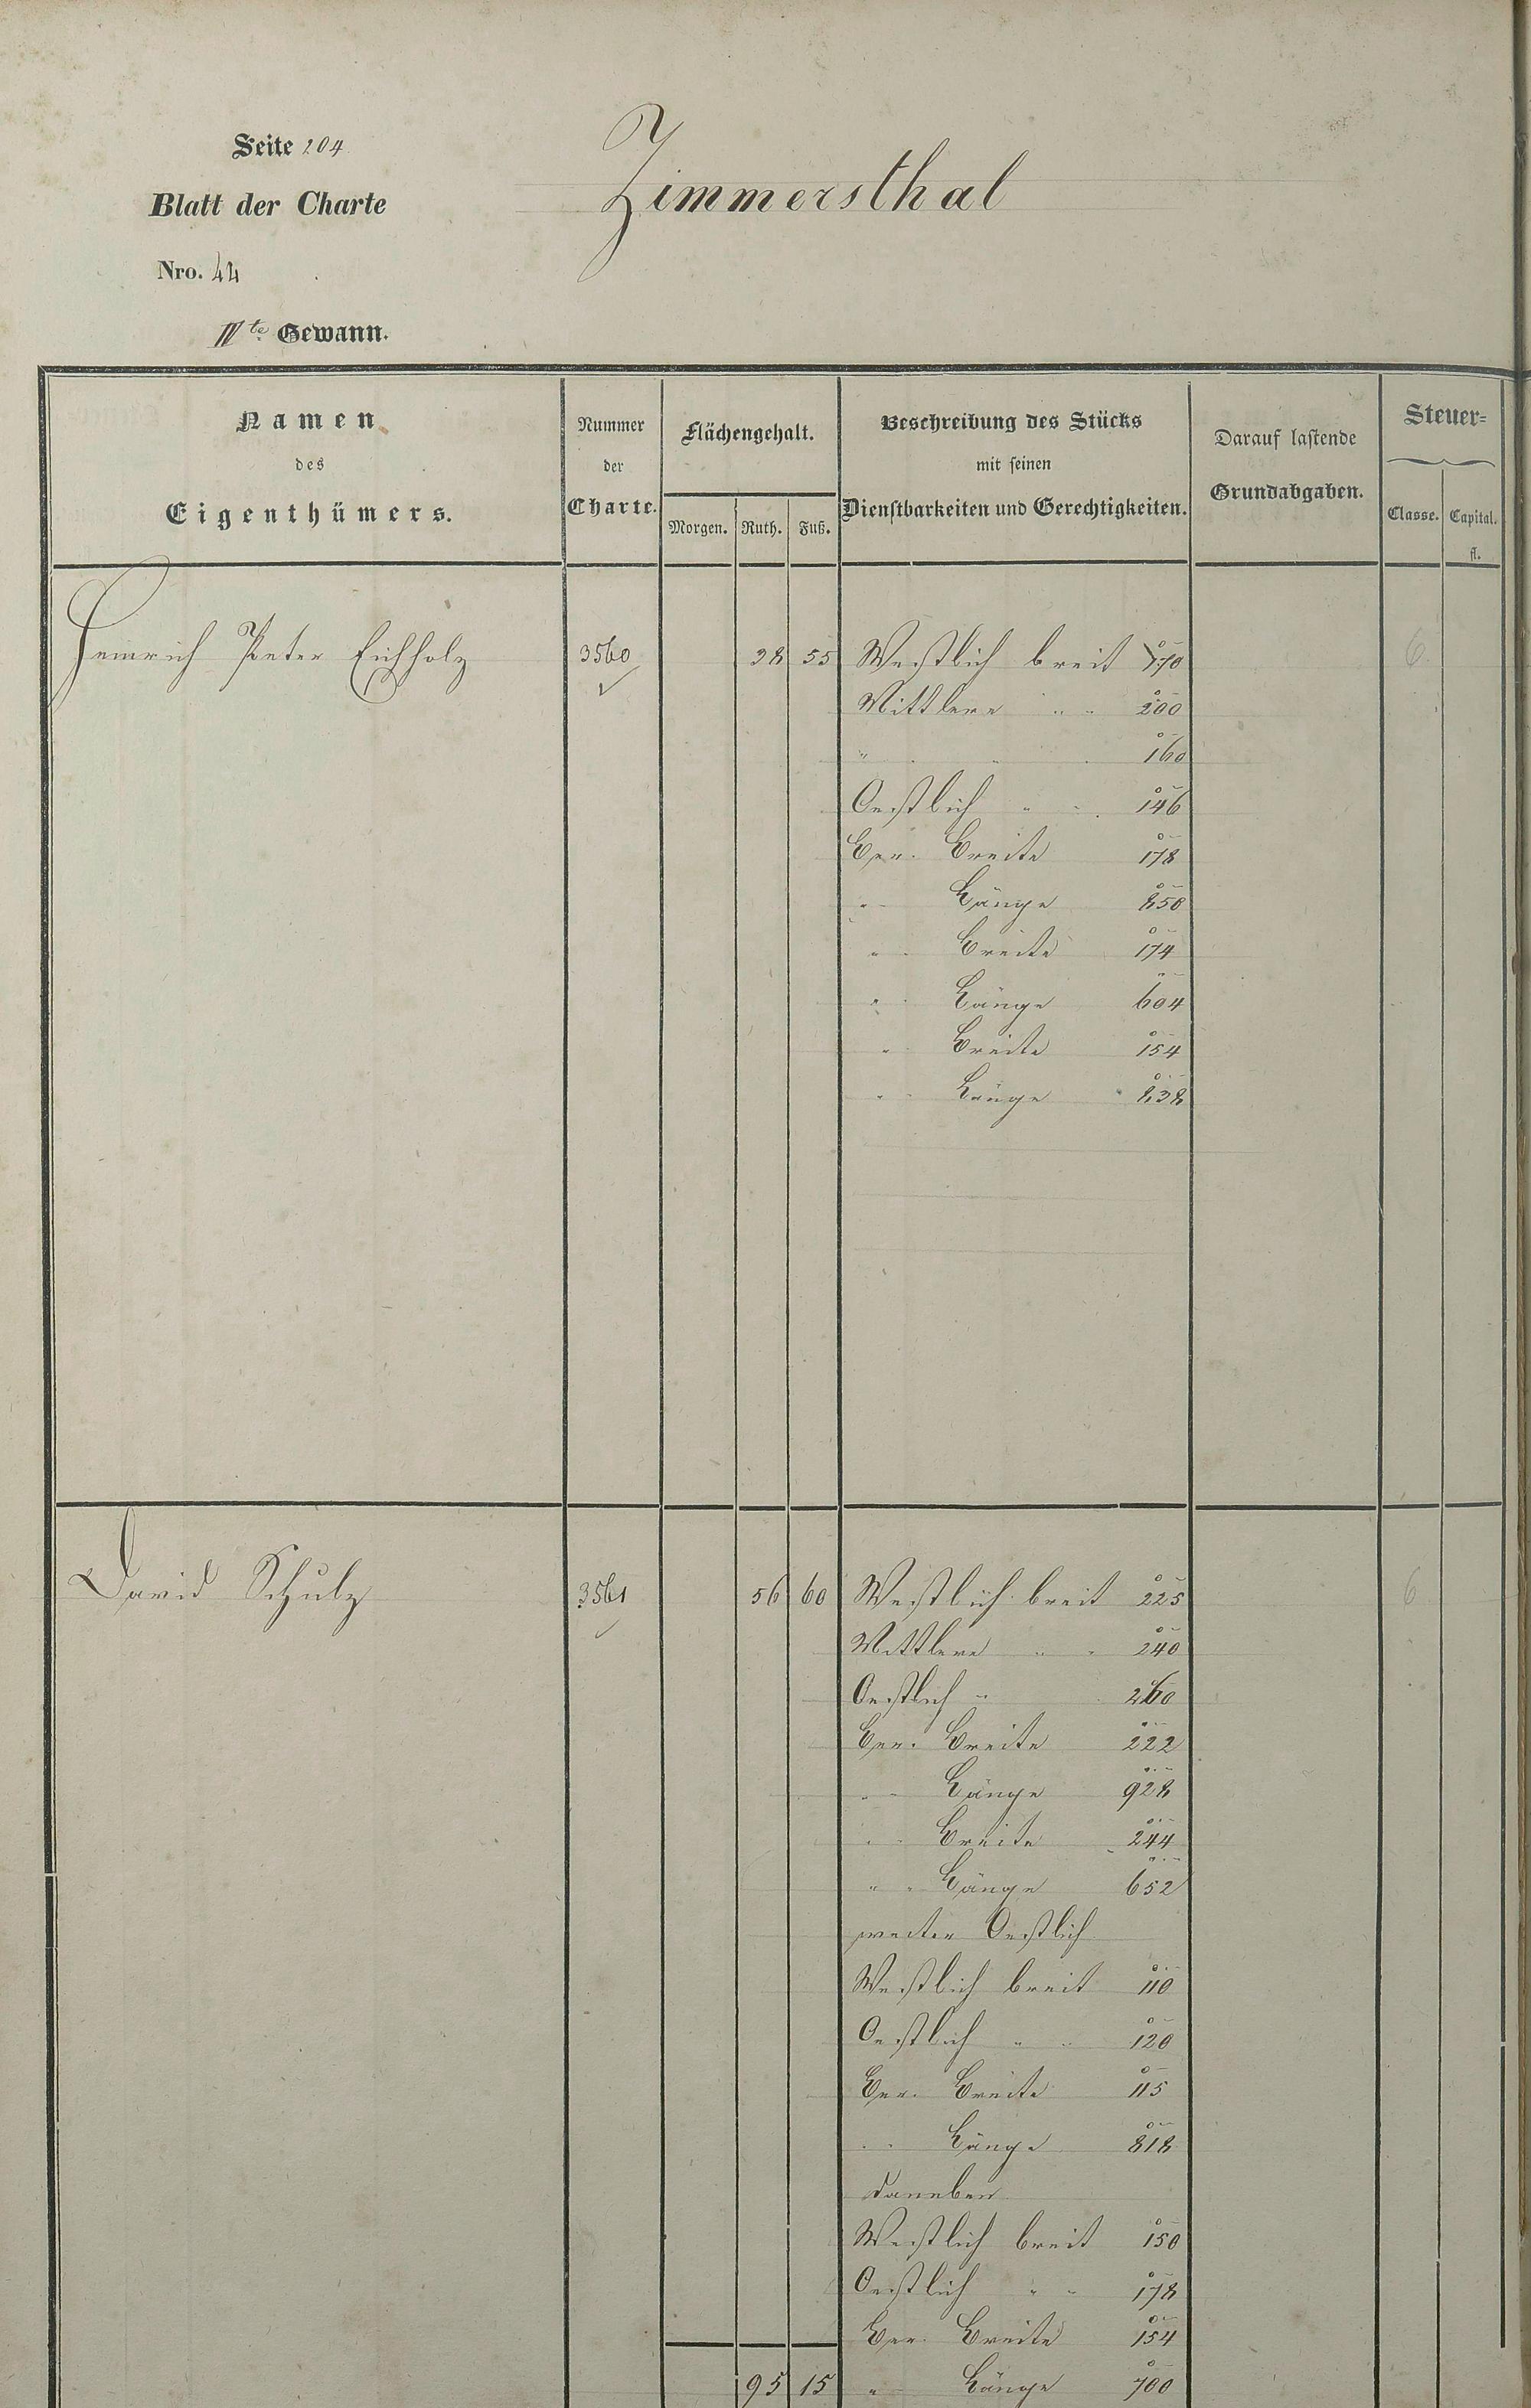 Seite 204
Blatt der Charte
Nro. 44
IVte Gewann.
Zimmersthal
Namen des Eigenthümers.
Nummer der Charte.
Flächengehalt.
Morgen. Ruth. Fuß.
Beschreibung des Stücks
mit seinen
Dienstbarkeiten und Gerechtigkeiten.
Darauf lastende
Grundabgaben.
Steuer=
Classe. Capital.
fl.
Heinrich Peter Eichholz 3560 38 55 Westlich breit 170 6.
Mittlere " " 200
" " 160
Oestlich " " 146
Ber. Breite 178
" Länge 850
" Breite 174
" Länge 604
" Breite 154
" Länge 838
David Schulz 3561 56 60 Westlich breit 225 6
Mittlere " " 240
Oestlich " 260
Ber. Breite 222
" Länge 928
" Breite 244
" " Länge 652
weiter Oestlich
Westlich breit 110
Oestlich " " 120
Ber. Breite 115
" Länge 818
daneben
Westlich breit 150
Oestlich " " 178
Ber. Breite 154
95 15 " Länge 700